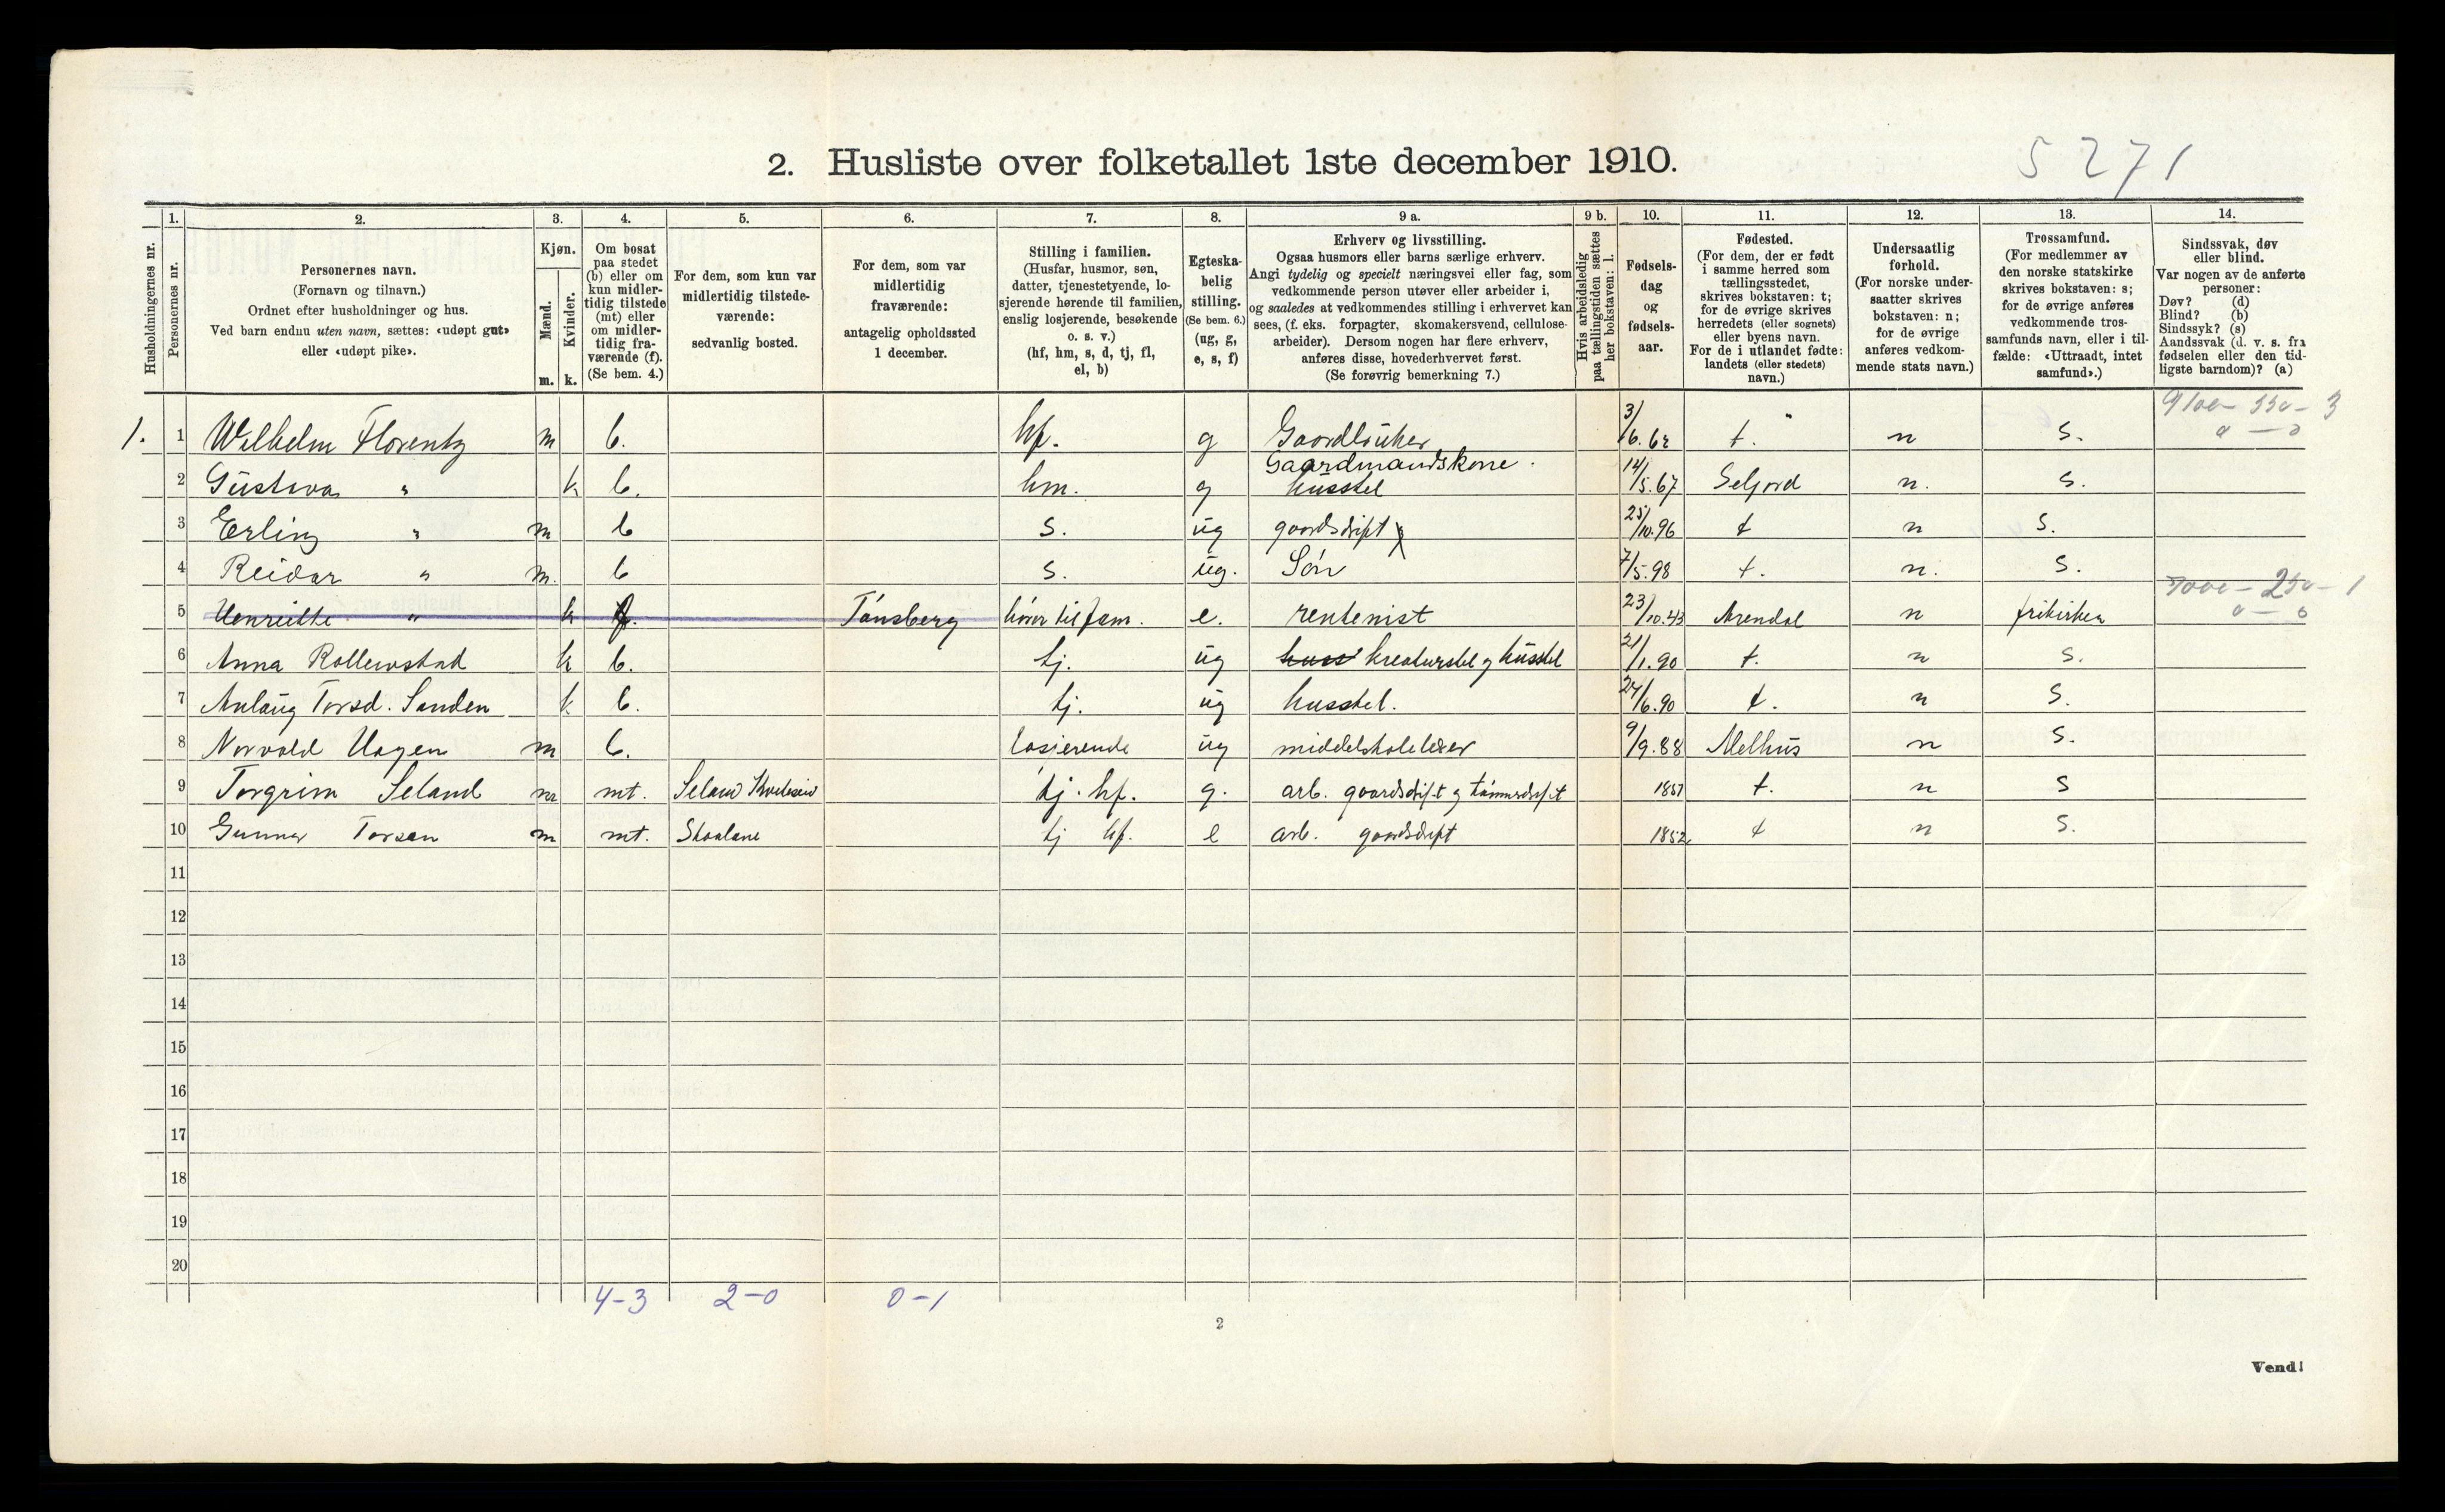 2. Husliste over folketallet 1ste december 1910.
5271
Husholdningernes nr.
1. Personernes nr.
2. Personernes navn.
(Fornavn og tilnavn.)
Ordnet efter husholdninger og hus.
Ved barn endnu uten navn, sættes: «udøpt gut»
eller «udøpt pike».
3. Kjøn.
Mænd. m.
Kvinder. k.
4. Om bosat
paa stedet
(b) eller om
kun midler-
tidig tilstede
(mt) eller
om midler-
tidig fra-
værende (f).
(Se bem. 4.)
5. For dem, som kun var
midlertidig tilstede-
værende:
sedvanlig bosted.
6. For dem, som var
midlertidig
fraværende:
antagelig opholdssted
1 december.
7. Stilling i familien.
(Husfar, husmor, søn,
datter, tjenestetyende, lo-
sjerende hørende til familien,
enslig losjerende, besøkende
o. s. v.)
(hf, hm, s, d, tj, fl,
el, b)
8. Egteska-
belig
stilling.
(Se bem. 6.)
(ug, g,
e, s, f)
9 a. Erhverv og livsstilling.
Ogsaa husmors eller barns særlige erhverv.
Angi tydelig og specielt næringsvei eller fag, som
vedkommende person utøver eller arbeider i,
og saaledes at vedkommendes stilling i erhvervet kan
sees, (f. eks. forpagter, skomakersvend, cellulose-
arbeider). Dersom nogen har flere erhverv,
anføres disse, hovederhvervet først.
(Se forøvrig bemerkning 7.)
9 b. Hvis arbeidsledig
paa tællingstiden sættes
her bokstaven: l.
10. Fødsels-
dag
og
fødsels-
aar.
11. Fødested.
(For dem, der er født
i samme herred som
tællingsstedet,
skrives bokstaven: t;
for de øvrige skrives
herredets (eller sognets)
eller byens navn.
For de i utlandet fødte:
landets (eller stedets)
navn.)
12. Undersaatlig
forhold.
(For norske under-
saatter skrives
bokstaven: n;
for de øvrige
anføres vedkom-
mende stats navn.)
13. Trossamfund.
(For medlemmer av
den norske statskirke
skrives bokstaven: s;
for de øvrige anføres
vedkommende tros-
samfunds navn, eller i til-
fælde: «Uttraadt, intet
samfund».)
14. Sindssvak, døv
eller blind.
Var nogen av de anførte
personer:
Døv? (d)
Blind? (b)
Sindssyk? (s)
Aandssvak (d. v. s. fra
fødselen eller den tid-
ligste barndom)? (a)
1. 1 Wilhelm Florentz m b. hf. g Gaardbruker 3/6.62 t. n s.
2 Gustava " k b. hm. g Gaardmandskone. husstel 14/5.67 Seljord n. s.
3 Erling " m b s. ug gaardsdrift 25/10.96 t n s.
4 Reidar " m. b s. ug. Søn 7/5.98 t. n. s.
5 Henriette " k f. Tønsberg hører til fam. e. rentenist 23/10.43 Arendal n frikirken
6 Anna Rollevstad k b. tj. ug huss kreaturstel og husstel 21/1.90 t. n s.
7 Anlaug Torsd. Sanden k b. tj. ug husstel. 24/6.90 t. n s.
8 Norvald Hagen m b. losjerende ug middelskolelærer 9/9.88 Melhus n s.
9 Torgrim Seland m mt. Seland Kviteseid tj. hf. g. arb. gaardsdrift og tømmerdrift 1857 t. n s
10 Gunnar Torsen m mt. Skaalane tj hf. e arb. gaardsdrift 1852 t n s.
11
12
13
14
15
16
17
18
19
20
4-3 2-0 0-1
2
Vend!